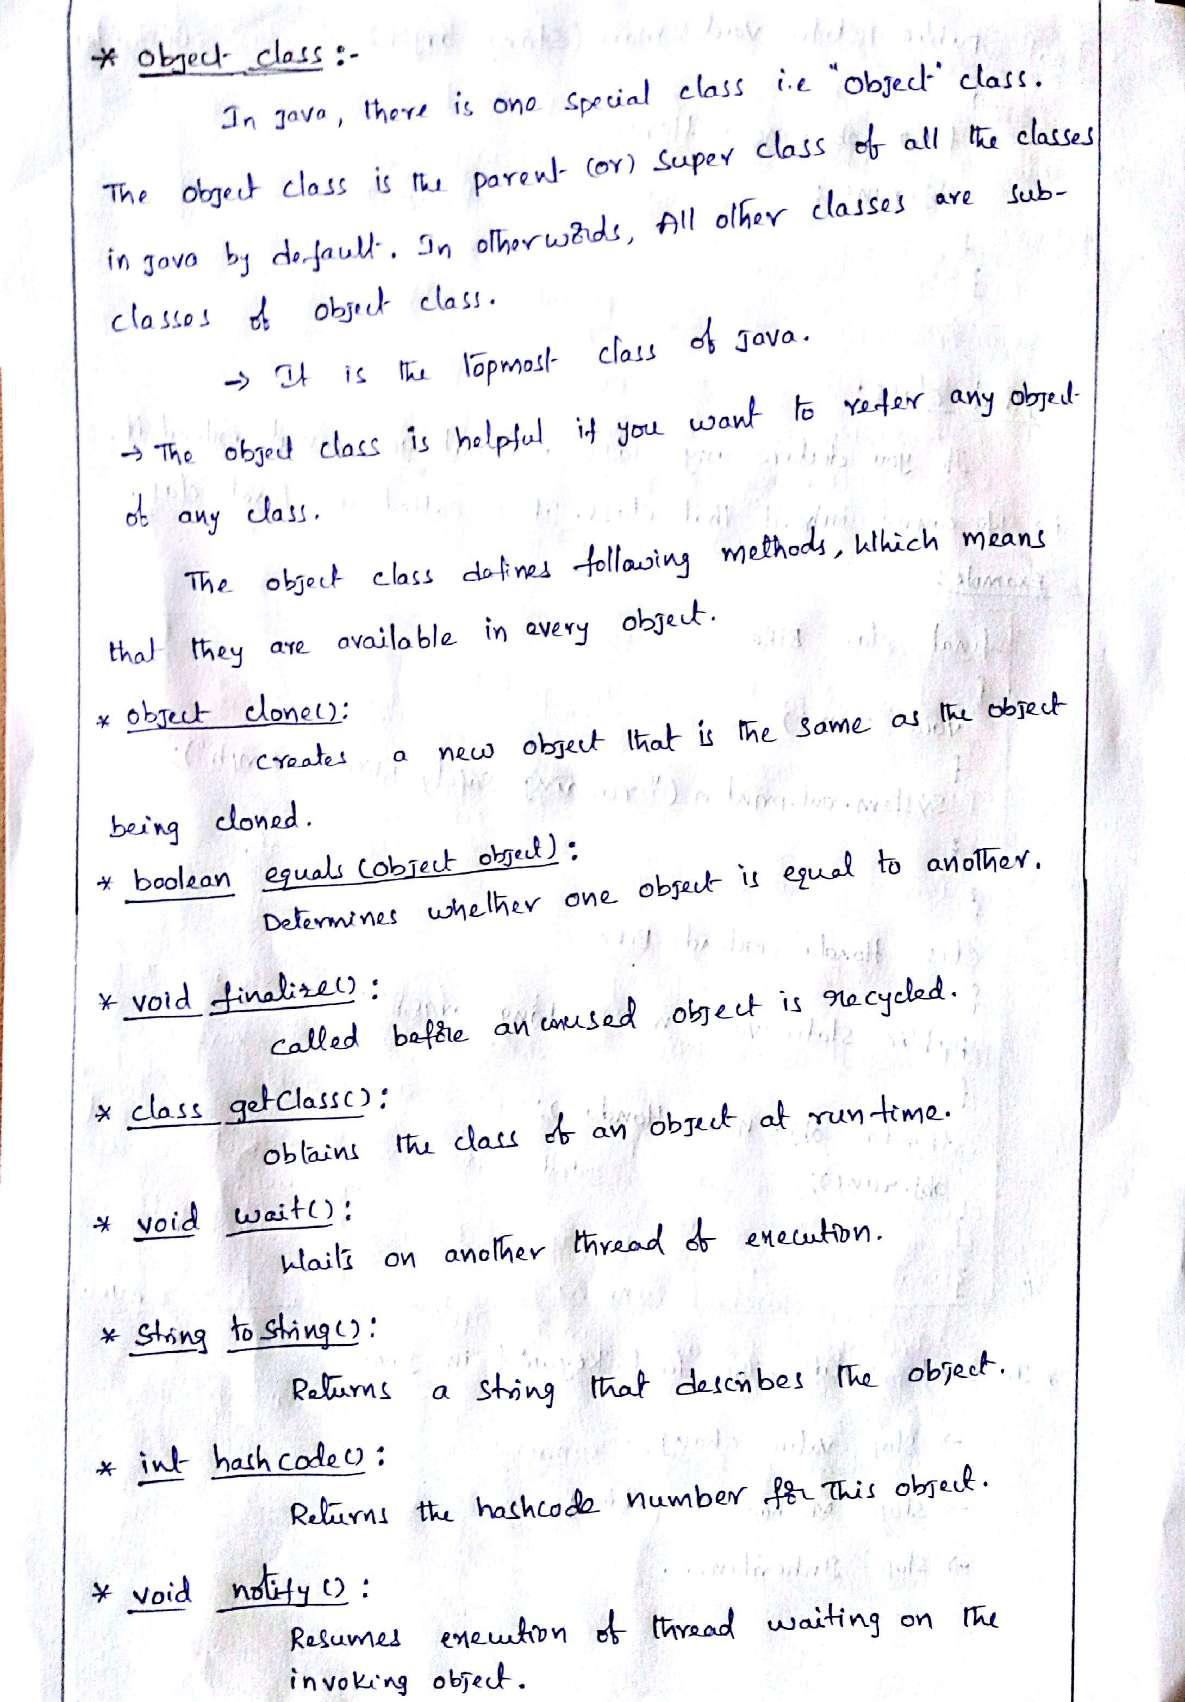 * Object class :-
In Java, there is one special class i.e "Object" class.
The object class is the parent (or) super class of all the classes
in Java by default. In otherwords, All other classes are sub-
classes of Object class.
→ It is the topmost class of Java.
→ The object class is helpful if you want to refer any object
of any class.
The object class defines following methods, which means
that they are available in every object.
* object clone():
creates a new object that is the same as the object
being cloned.
* boolean equals (object object) :
Determines whether one object is equal to another.
* void finalize() :
called before an unused object is recycled.
* class getClass() :
obtains the class of an object at run-time.
* void wait() :
Waits on another thread of execution.
* String toString() :
Returns a string that describes the object.
* int hashcode() :
Returns the hashcode number for this object.
* void notify () :
Resumes execution of thread waiting on the
invoking object.